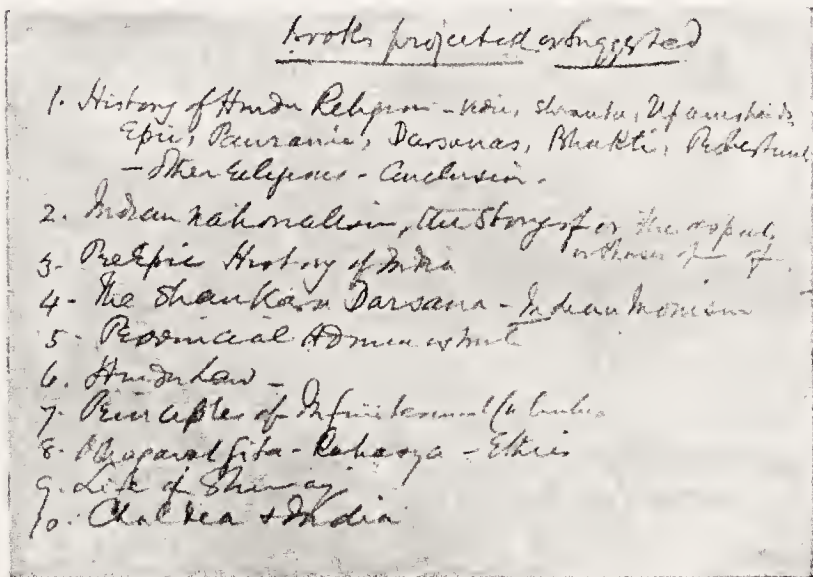 books projected or Suggested
1. History of Hindu Religion - Vedic, Shrauta, Upanishads,
Epic, Pauranic, Darsanas, Bhakti,
- Other religions - Conclusion.
2. Indian Nationalism, the Story of or the
3. Pre Epic History of India
4. The Shankara Darsana - Indian Monism
5. Provincial Administrat
6. Hindu Law -
7. Principles of Infinitesimal Calculus
8. Bhagavat Gita - Rahasya - Ethics
9. Life of Shivaji
10. Chaldea & India